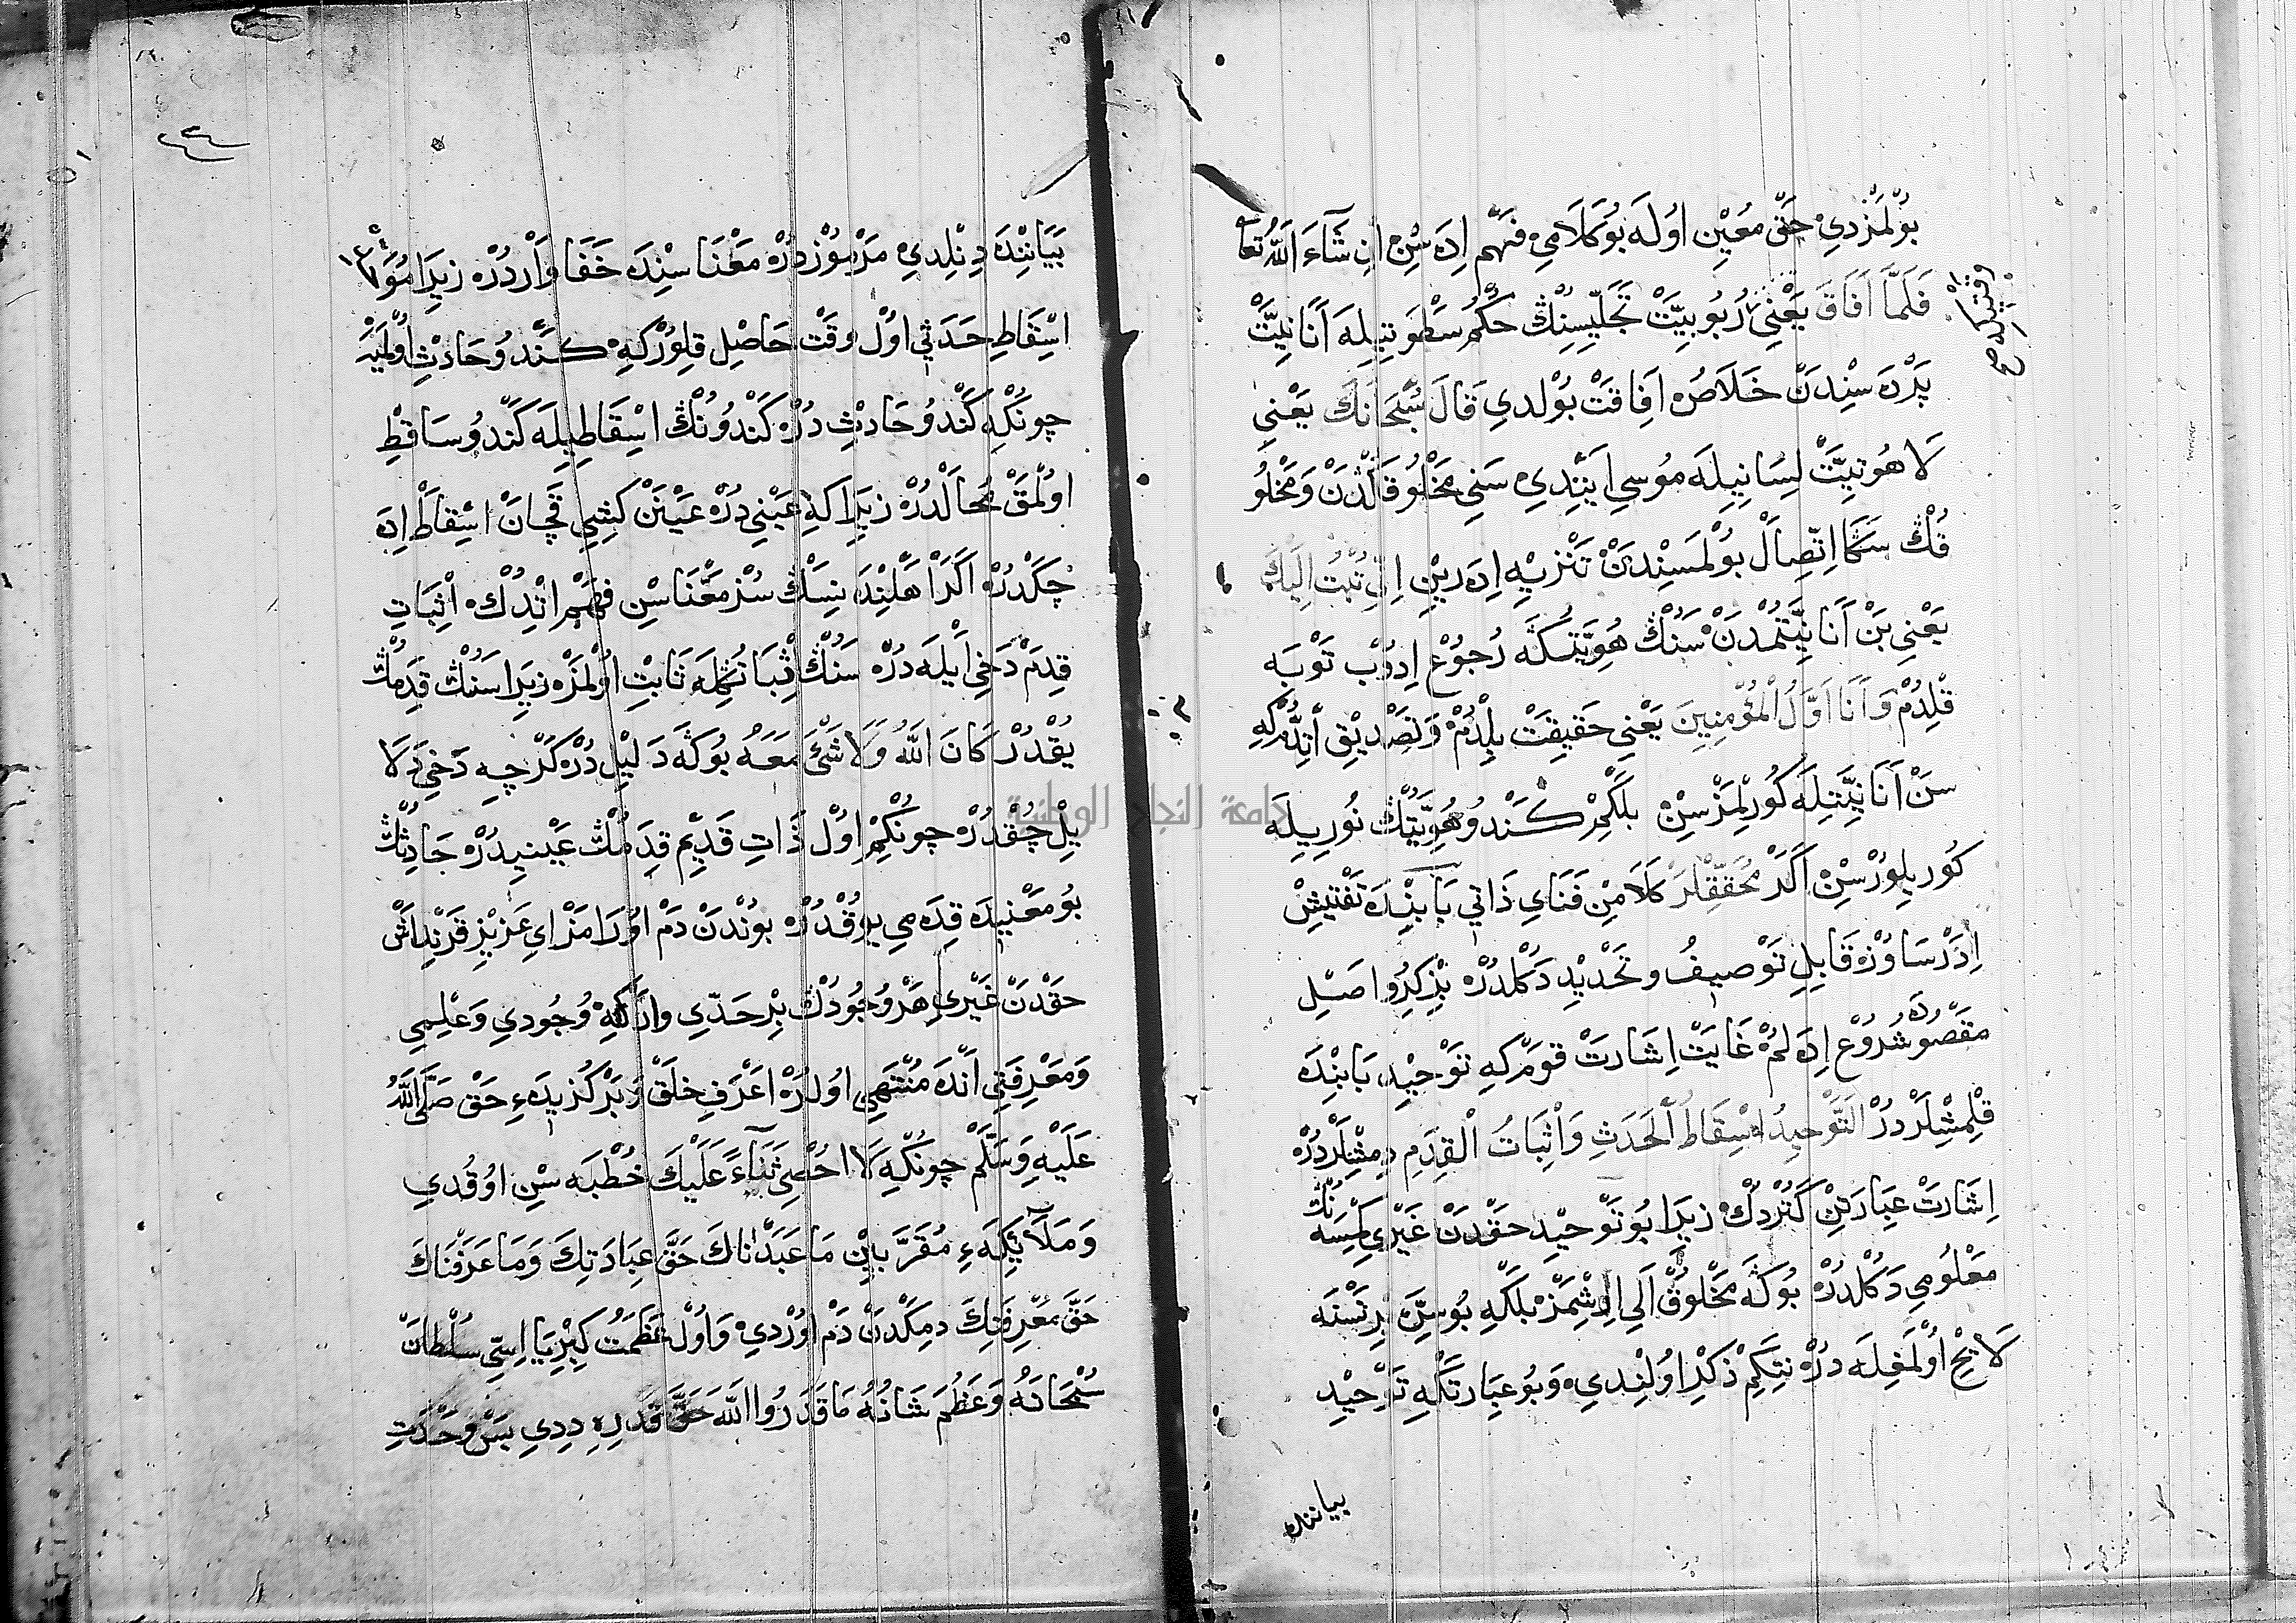 بُولْمَزْدِي حَتَّى مُعَيَّنْ اُولَه بُو كَلَامِي فَهْم اِدَه سِنْ اِنْ شَآءَ اَللّٰهُ تَعَا
فَلَمَّا اَفَاقَ يَعْنِي رُبُوبِيَّتْ تَجَلِّيسِنُڭْ حُكْمِ سَطْوَتِيلَه اَنَانِيَّتْ
پَرْدَه سِنْدَنْ خَلَاصْ اِفَاقَتْ بُولْدِي قَالَ سُبْحَانَكَ يَعْنِي
لَاهُوتِيَّتْ لِسَانِيلَه مُوسِي اَيْتِدِي سَنِي مَخْلُوقَاتْدَنْ وَ مَخْلُو
قُڭْ سَڭَا اِتِّصَالْ بُولْمَسِنْدَنْ تَنْزِيه اِدَه رِينْ اِنِّي تُبْتُ اِلَيْكَ
يَعْنِي بَنْ اَنَانِيَّتُمْدَنْ سَنُڭْ هُوِيَّتُڭَه رُجُوعْ اِدُوبْ تَوْبَه
قِلْدُمْ وَ اَنَا اَوَّلُ الْمُؤْمِنِينَ يَعْنِي حَقِيقَتْ بِلْدُمْ وَ تَصْدِيقْ اِتْدُمْ كِه
سَنْ اَنَانِيَّتِلَه كُورِلْمَزْسِنْ بَلْكِمْ كَنْدُو هُوِيَّتُڭْ نُورِيلَه
كُورِيلُورْسِنْ اَكَرْ مُحَقِّقْلَرْ كَلَامِنْ فَنَايِ ذَاتِي بَابِنْدَه تَفْتِيشْ
اِدَرْسَاوُزْ قَابِلِ تَوْصِيفْ و تَحْدِيدْ دَكُلْدُرْ بِزْ كِرُو اَصْلِ
مَقْصُودَه شُرُوعْ اِدَه لُمْ غَايَتْ اِشَارَتْ قَوْمْ كِه تَوْحِيدْ بَابِنْدَه
قِلْمِشْلَرْدُرْ اَلتَّوْحِيدُ اِسْقَاطُ الْحَدَثِ وَ اِثْبَاتُ الْقِدَمِ دِمِشْلَرْدُرْ
اِشَارَتْ عِبَارَتِنْ كَتُرْدُكْ زِيرَا بُو تَوْحِيدْ حَقْدَنْ غَيْرِي كِمْسَه نُڭْ
مَعْلُومِي دَكُلْدُرْ بُوكَه مَخْلُوقْ اَلِي اِرِشْمَزْ بَلْكِه بُو سِرَّه بِرْ نَسْنَه
لَايِحْ اُولْمَغِلَه دُرْ نِتَكِمْ ذِكْرْ اُولِنْدِي وَ بُو عِبَارَتْكِه تَوْحِيدْ
بيانند
بَيَانِنْدَه دِنِلْدِي مَرْمُوزْدُرْ مَعْنَا سِنْدَه خَفَا وَارْدُرْ زِيرَا مُوَ
اِسْقَاطِ حَدَثِي اُولْ وَقْتْ حَاصِلْ قِلُورْكِه كَنْدُو حَادِثْ اُولْمَيَه
چُونْكِه كَنْدُو حَادِثْ دُرْ كَنْدُونُڭْ اِسْقَاطِيلَه كَنْدُو سَاقِطْ
اُولْمَقْ مُحَالْدُرْ زِيرَا كَه عَيْنِي دُرْ عَيْنَنْ كِشِي قَچَانْ اِسْقَاطْ اِدَه
قِدَمْ دَخِي اَيْلَه دُرْ سَنُڭْ اِثْبَاتُڭِلَه ثَابِتْ اُولْمَزْ زِيرَا سَنُڭْ قَدَمُڭْ
يُقْدُرْ كَانَ اللّٰهُ وَلَا شَيْءَ مَعَهُ بُوكَه دَلِيلْ دُرْ كَرْچِه دَخِي دَلَا
يِلْ چُقْدُرْ چُونْكِمْ اُولْ ذَاتِ قَدِيمْ قِدَمُڭْ عَيْنِيدُرْ حَادِثُڭْ
بُو مَعْنِيدَه قِدَه مِي يُوقْدُرْ بُونْدَنْ دَمْ اُورَامَزْ اِي عَزِيزْ قَرِنْدَاشْ
حَقْدَنْ غَيْرِي هَرْ وُجُودُڭْ بِرْ حَدِّي وَارْ كِه وُجُودِي وَ عِلْمِي
وَ مَعْرِفَتِي اَنْدَه مُنْتَهِي اُولُرْ اَعْرَفِ خَلْقْ وَ بَرْكُزِيدَهءِ حَقْ صَلَّى اللّٰهُ
عَلَيْهِ وَسَلَّمْ چُونْكِه لَا اُحْصِي ثَنَاءً عَلَيْكَ خُطْبَه سِنْ اُوقُدِي
وَ مَلَائِكَهءِ مُقَرَّبِينْ مَا عَبَدْنَاكَ حَقَّ عِبَادَتِكَ وَمَا عَرَفْنَاكَ
حَقَّ مَعْرِفَتِكَ دِمَكْدَنْ دَمْ اُورْدِي وَ اُولْ عَظَمَتْ كِبْرِيَا اِسِّي سُلْطَانْ
سُبْحَانَهُ وَ عَظُمَ شَانُهُ مَا قَدَرُوا اللّٰهَ حَقَّ قَدْرِهِ دِدِي بَسْ وَحْدَتِ